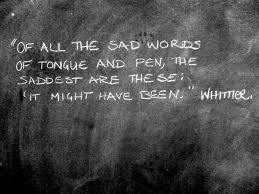 "OF ALL THE SAD WORDS
OF TONGUE AND PEN, THE
SADDEST ARE THESE:
'IT MIGHT HAVE BEEN." WHITTIER.